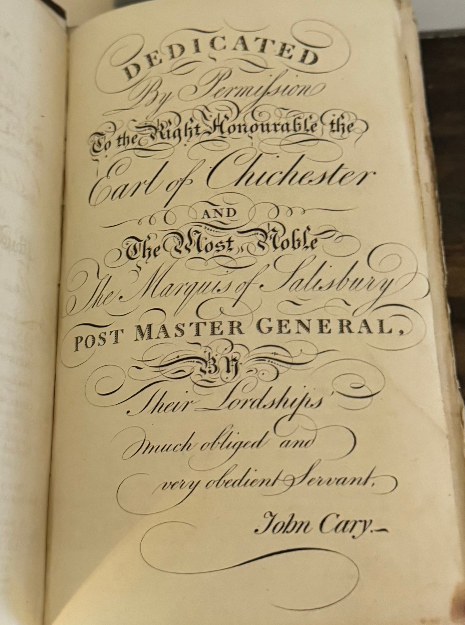 DEDICATED
By Permission
To the Right Honourable the
Earl of Chichester
AND
The Most Noble
The Marquis of Salisbury
POST MASTER GENERAL,
BY
Their Lordships'
much obliged and
very obedient Servant,
John Cary.